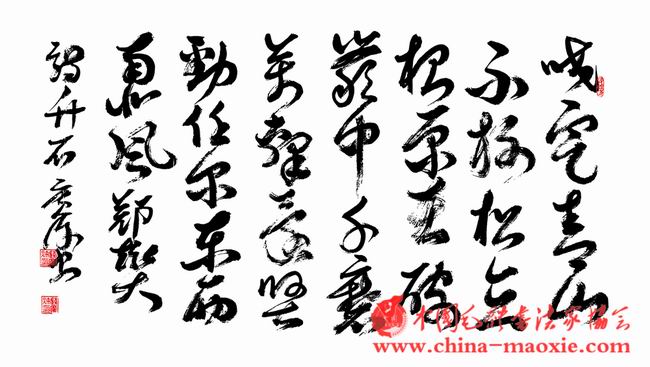 咬定青山
不放松立
根原在破
巖中千磨
萬擊還堅
勁任尔东西
南北风郑燮
詩竹石 书
中国毛体书法家协会
www.china-maoxie.com